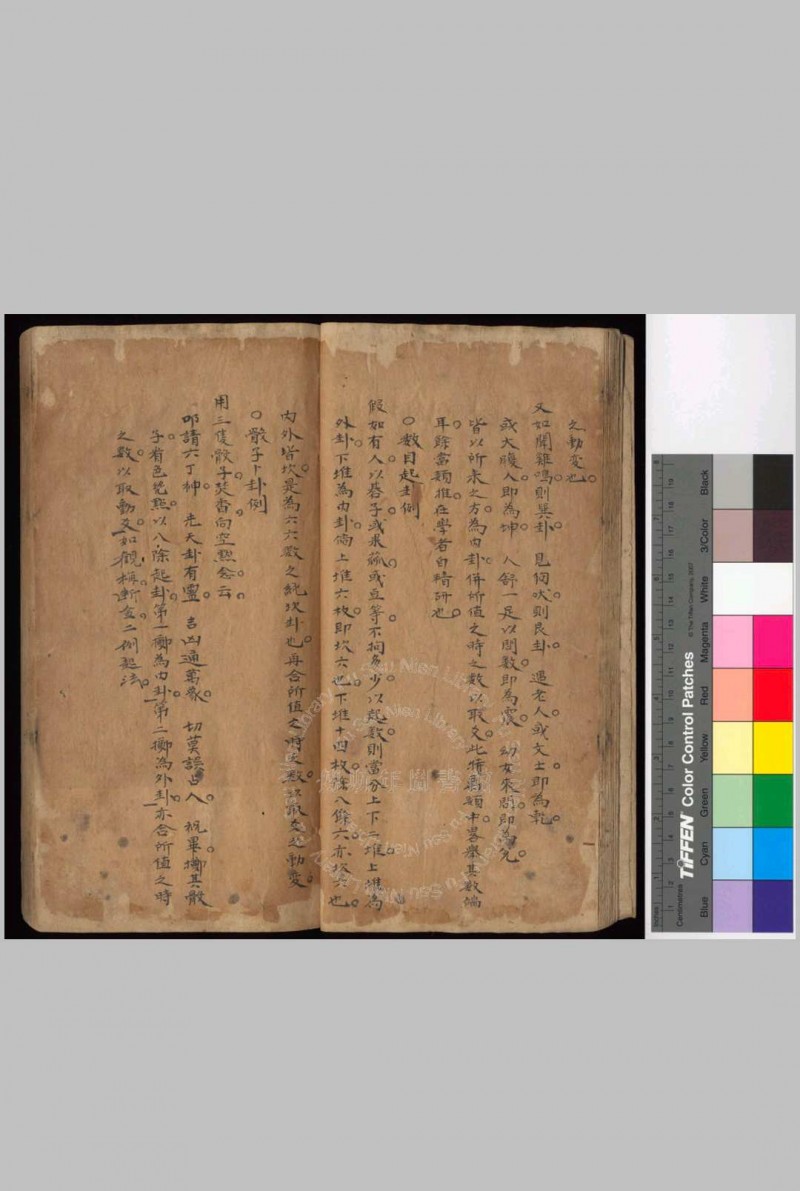 之動変也。
又如聞雞鳴則巽卦　見狗吠則艮卦　遇老人或文士即為乾。
或大腹人即為坤　人舒一足以問数即為震　幼女來問即為兌
皆以所来之方。為内卦。併所值之時之数以取爻。此特於類中畧舉其数端
耳。餘當類推在學者自精研也。
○数目起卦例
假如有人以棊子。或米或豆等。不拘多少。以起数。則當分上下二堆。上堆為
外卦。下堆為内卦。倘上堆六枚。即坎六也。下堆十四枚除八餘六亦坎六也。
内外皆坎。是為六六数之純坎卦也。再合所值之時之数以取爻之動變。
○骰子卜卦例
用三隻骰子。焚香向空黙念云。
叩請六丁神。　先天卦有靈。　吉凶通萬象。　切莫誤占人　祝畢。擲其骰
子看色。㸃以八除起卦。第一擲為内卦。第二擲為外卦。亦合所值之時
之数以取動爻。如觀梅斷金二例起法。
TIFFEN Color Control Patches
© The Tiffen Company, 2007
Blue
Cyan
Green
Yellow
Red
Magenta
White
3/Color
Black
Centimetres
Inches